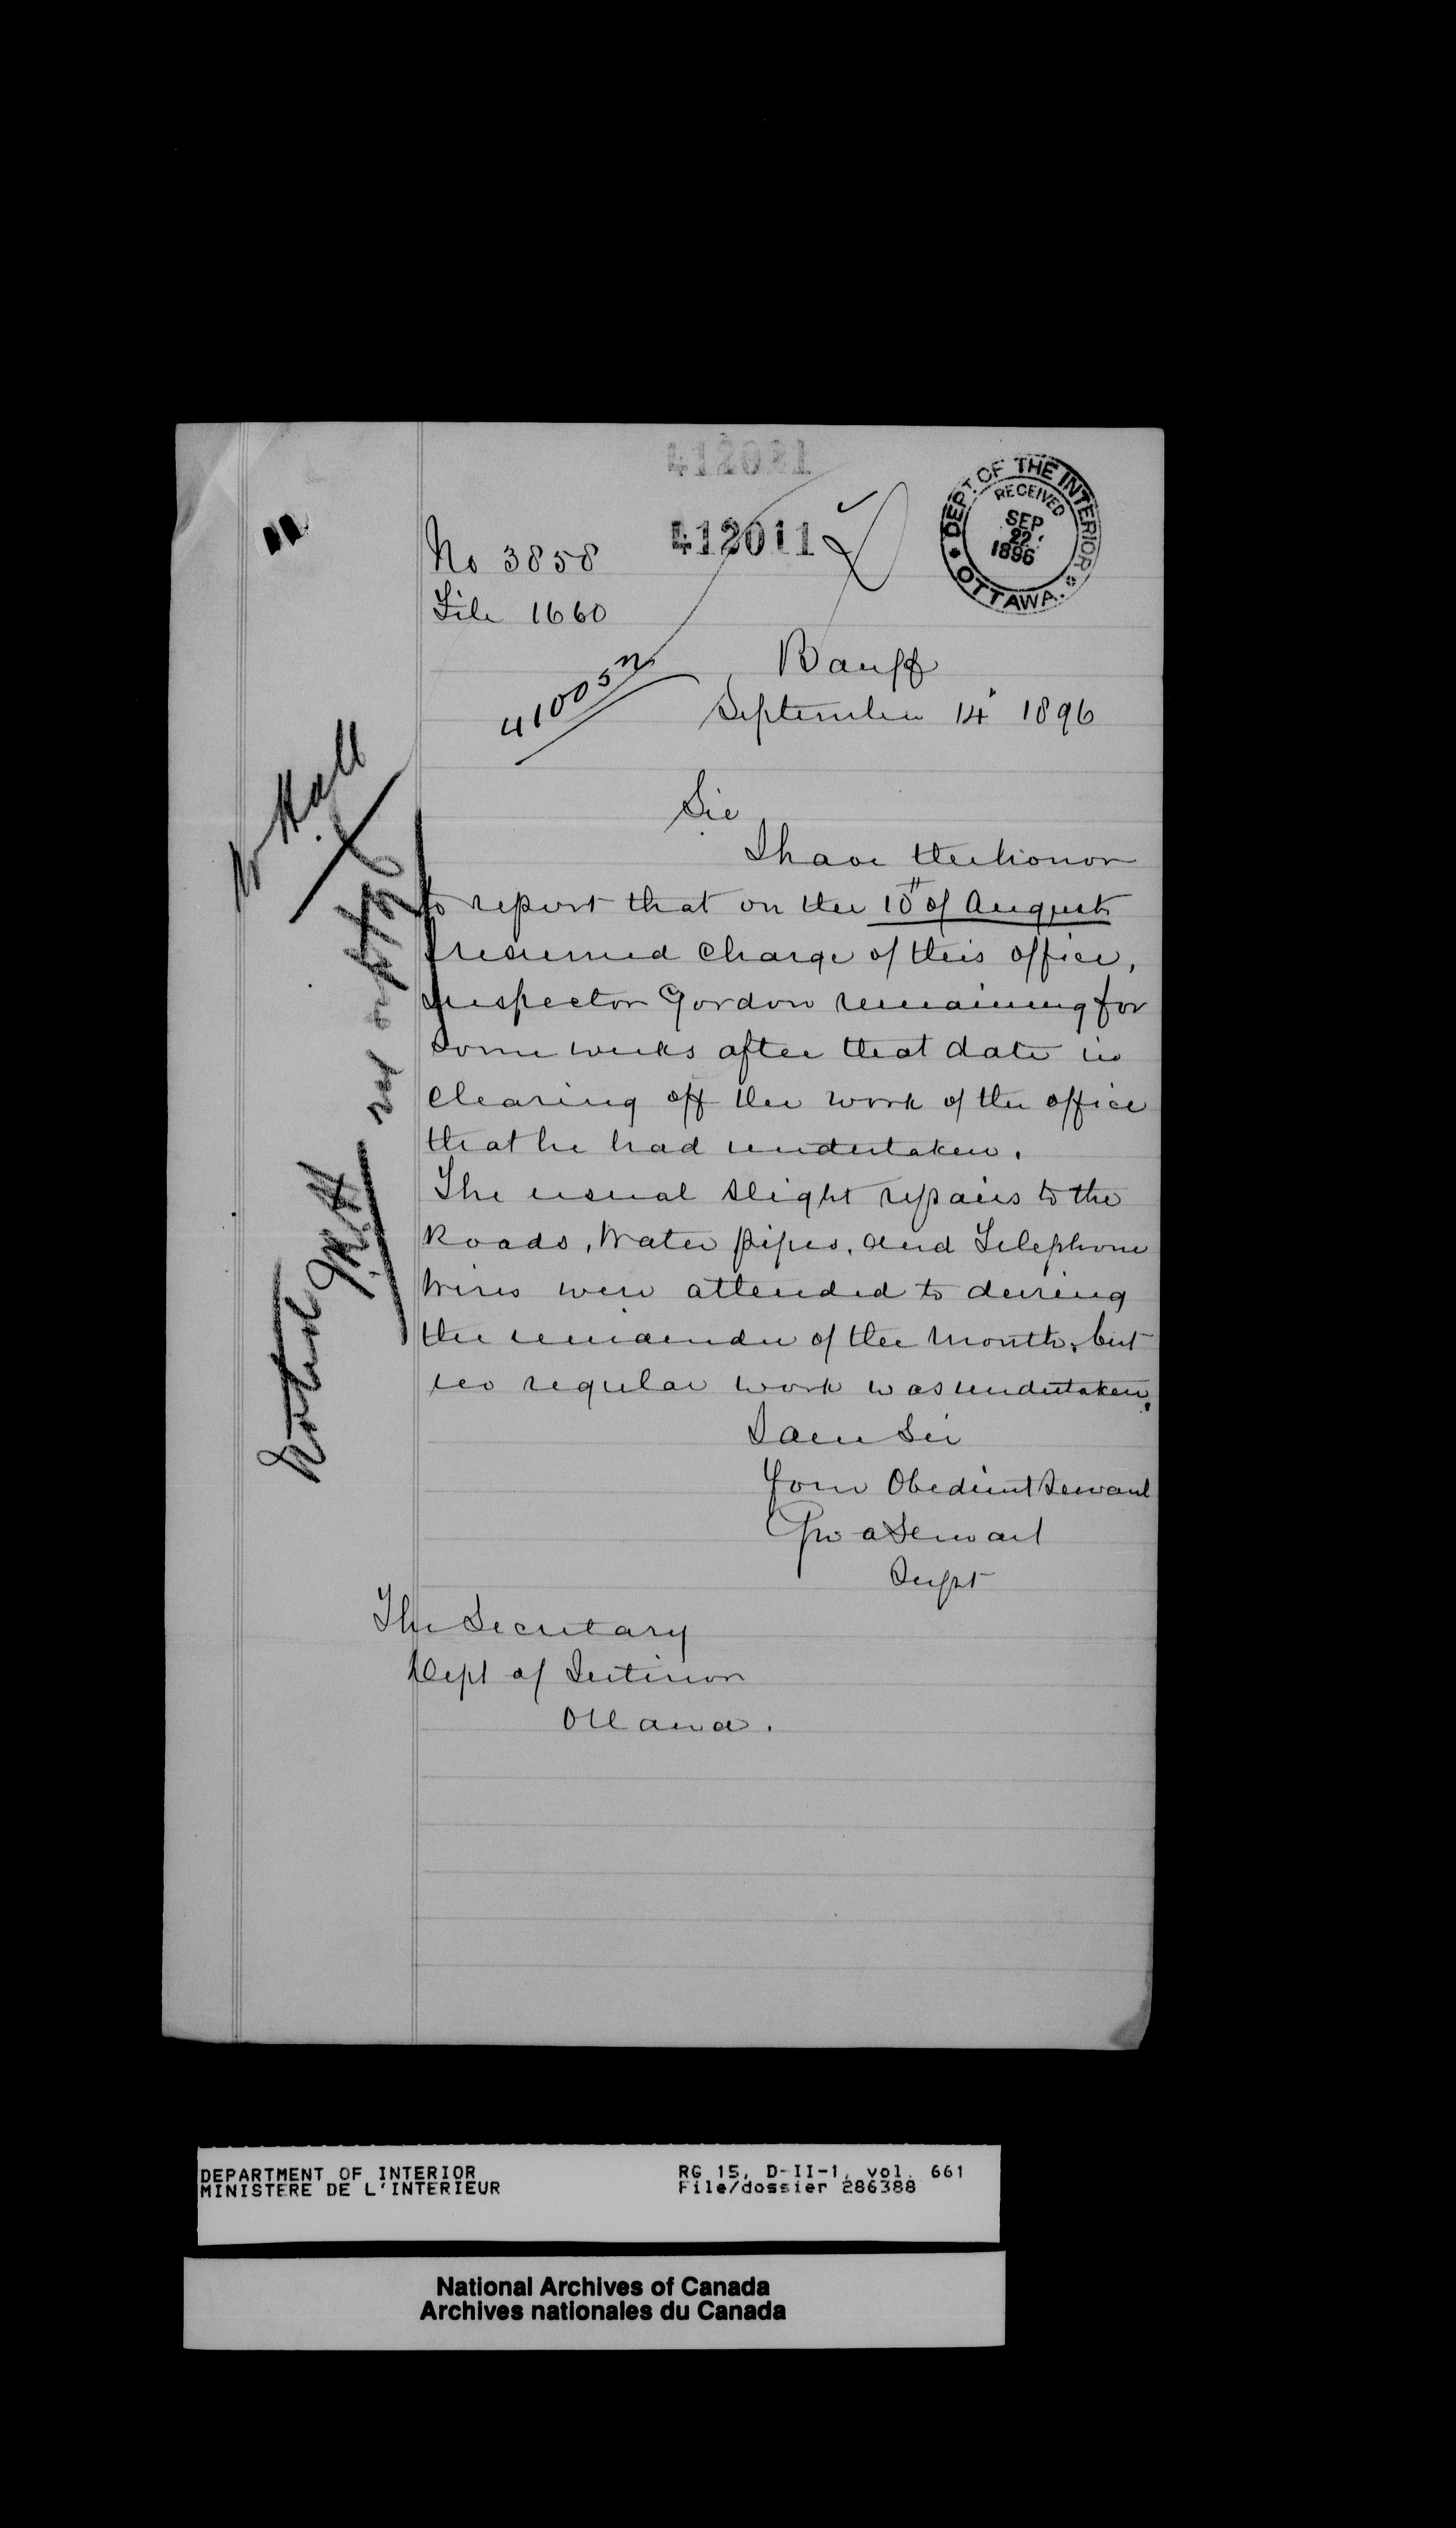 412011
DEPT. OF THE INTERIOR
RECEIVED
SEP
22
1896
OTTAWA.
No 3858
File 1660
Banff
410052
September 14" 1896
Mr Hall
Sir
I have the honor
to report that on the 10th of August
I resumed charge of this office,
Inspector Gordon remaining for
some weeks after that date in
clearing off the work of the office
that he had undertaken.
The usual slight repairs to the
Roads, Water pipes, and Telephone
Wires were attended to during
the remainder of the month, but
no regular work was undertaken.
I am Sir
Your Obedient Servant
Geo A Stewart
Supt
The Secretary
Dept of Interior
Ottawa.
Noted
DEPARTMENT OF INTERIOR
MINISTERE DE L'INTERIEUR
RG 15, D-II-1, vol. 661
File/dossier 286388
National Archives of Canada
Archives nationales du Canada